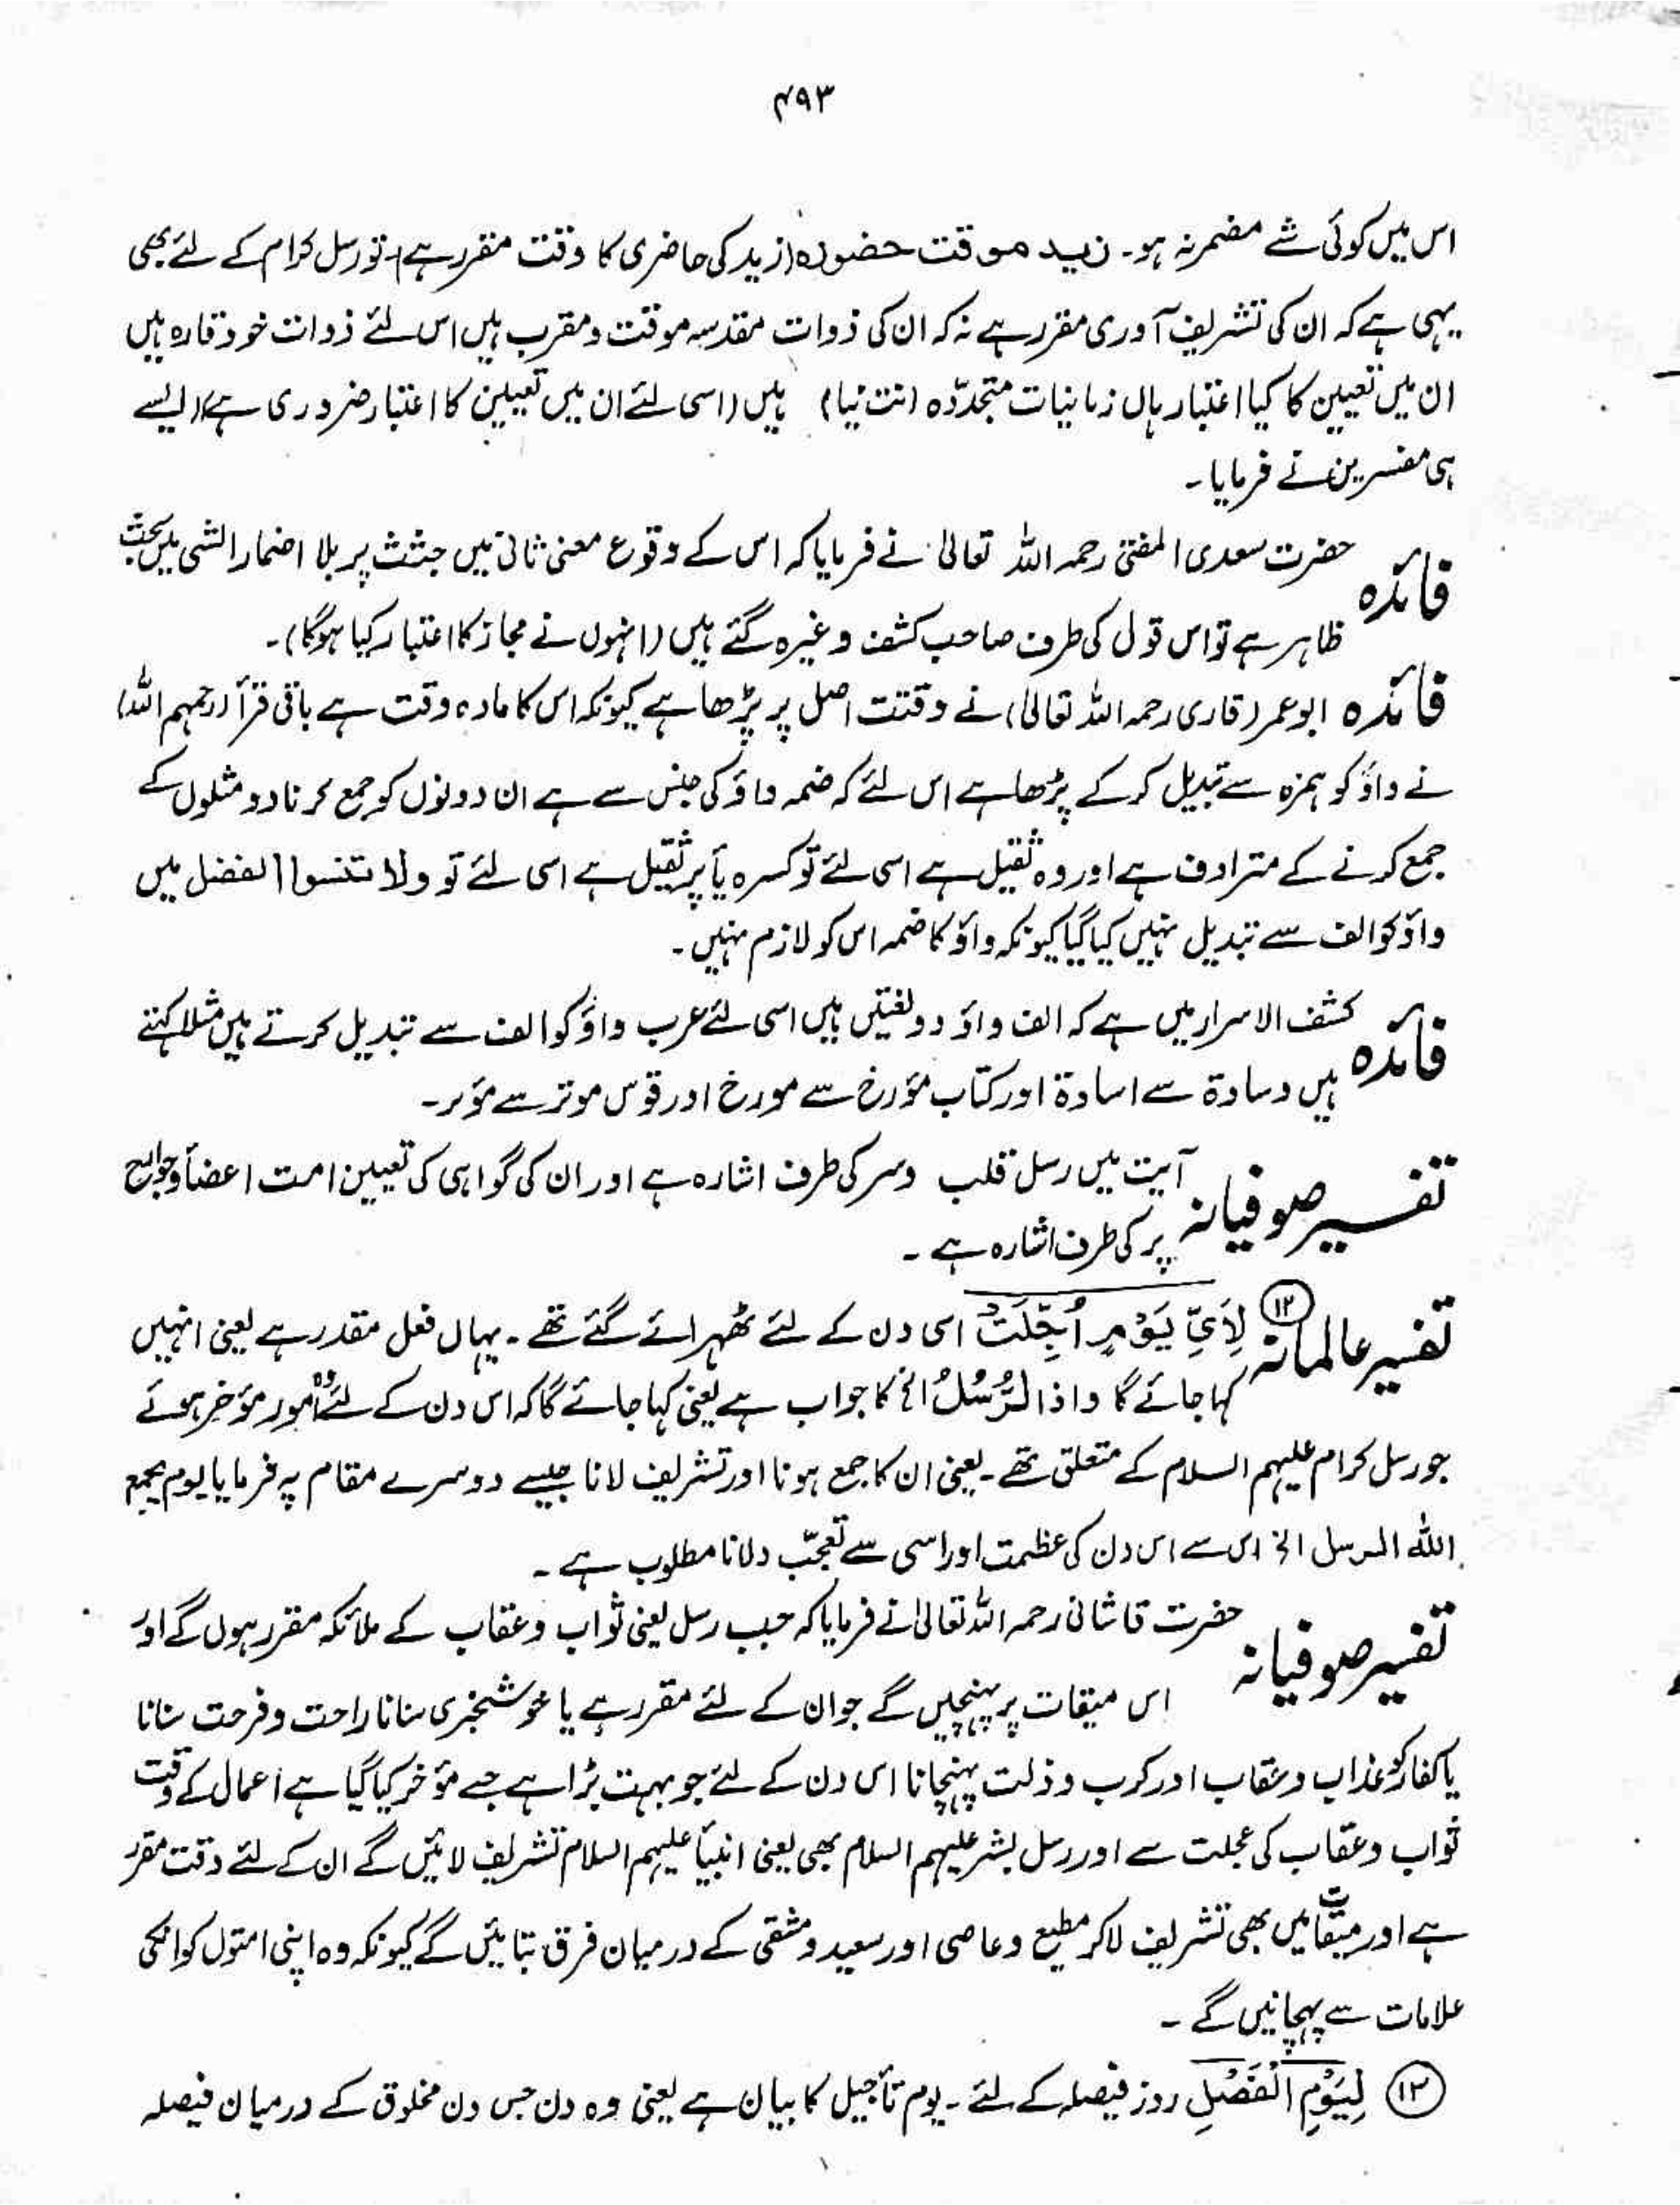 ۴۹۳
اس میں کوئی شے مضمر نہ ہو۔ زید موقت حضورہ (زید کی حاضری کا وقت مقرر ہے) تو رسل کرام کے لئے بھی
یہی ہے کہ ان کی تشریف آوری مقرر ہے نہ کہ ان کی ذوات مقدسہ موقت و مقرب ہیں اس لئے ذوات خود قارہ ہیں
ان میں تعیین کا کیا اعتبار ہاں زمانیات متجددّہ (نت نیا) ہیں (اسی لئے ان میں تعیین کا اعتبار ضروری ہے) ایسے
ہی مفسرین نے فرمایا۔
فائدہ حضرت سعدی المفتی رحمہ اللہ تعالیٰ نے فرمایا کہ اس کے وقوع معنی ثانی میں جثث پر بلا اضمار الشی میں بحث
ظاہر ہے تو اس قول کی طرف صاحب کشف وغیرہ گئے ہیں (انہوں نے مجاز کا اعتبار کیا ہوگا)۔
فائدہ ابو عمر (قاری رحمہ اللہ تعالیٰ) نے وقتت اصل پر پڑھا ہے کیونکہ اس کا مادہ وقت ہے باقی قرأ (رحمہم اللہ)
نے واؤ کو ہمزہ سے تبدیل کر کے پڑھا ہے اس لئے کہ ضمہ واؤ کی جنس سے ہے ان دونوں کو جمع کرنا دو مثلوں کے
جمع کرنے کے مترادف ہے اور وہ ثقیل ہے اسی لئے تو کسرہ یأ پر ثقیل ہے اسی لئے تو ولا تنسوا الفضل میں
واؤ کو الف سے تبدیل نہیں کیا گیا کیونکہ واؤ کا ضمہ اس کو لازم نہیں۔
فائدہ کشف الاسرار میں ہے کہ الف واؤ دو لغتیں ہیں اسی لئے عرب واؤ کو الف سے تبدیل کرتے ہیں مثلا کہتے
ہیں وسادۃ سے اسادۃ اور کتاب مؤرخ سے مورخ اور قوس موتر سے مؤتر۔
تفسیر صوفیانہ آیت میں رسل قلب وسر کی طرف اشارہ ہے اور ان کی گواہی کی تعیین امت اعضأ وجوارح
پر کی طرف اشارہ ہے۔
تفسیر عالمانہ ⑫ لِاَيِّ يَوْمٍ اُجِّلَتْ اسی دن کے لئے ٹھہرائے گئے تھے۔ یہاں فعل مقدر ہے یعنی انہیں
کہا جائے گا واذا الرُّسُلُ الخ کا جواب ہے یعنی کہا جائے گا کہ اس دن کے لئے وہ امور مؤخر ہوئے
جو رسل کرام علیہم السلام کے متعلق تھے۔ یعنی ان کا جمع ہونا اور تشریف لانا جیسے دوسرے مقام پہ فرمایا یوم یجمع
اللہ الرسل الخ اس سے اس دن کی عظمت اور اسی سے تعجّب دلانا مطلوب ہے۔
تفسیر صوفیانہ حضرت قاشانی رحمہ اللہ تعالیٰ نے فرمایا کہ جب رسل یعنی ثواب وعقاب کے ملائکہ مقرر ہوں گے اور
اس میقات پر پہنچیں گے جو ان کے لئے مقرر ہے یا خوشخبری سنانا راحت وفرحت سنانا
یا کفار کو عذاب وعقاب اور کرب وذلت پہنچانا اس دن کے لئے جو بہت بڑا ہے جسے مؤخر کیا گیا ہے اعمال کے وقت
ثواب وعقاب کی عجلت سے اور رسل بشر علیہم السلام بھی یعنی انبیأ علیہم السلام تشریف لائیں گے ان کے لئے وقت مقرر
ہے اور میقات میں بھی تشریف لاکر مطیع وعاصی اور سعید وشقی کے درمیان فرق بتائیں گے کیونکہ وہ اپنی امتوں کو انکی
علامات سے پہچانیں گے۔
⑬ لِيَوْمِ الْفَصْلِ روز فیصلہ کے لئے۔ یوم تأجیل کا بیان ہے یعنی وہ دن جس دن مخلوق کے درمیان فیصلہ